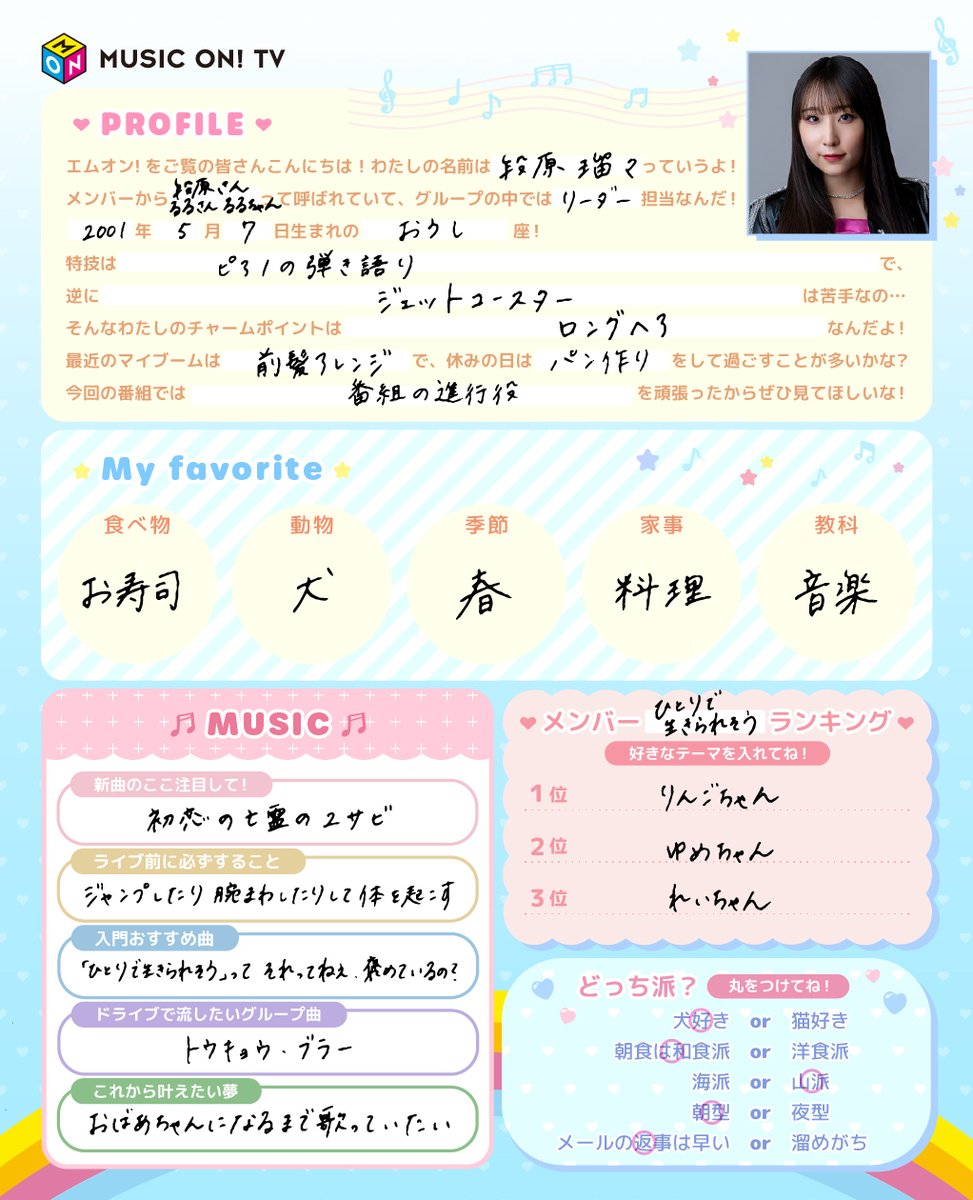 MON MUSIC ON! TV
PROFILE
エムオン!をご覧の皆さんこんにちは！わたしの名前は 鈴原 瑠々 っていうよ！
メンバーから 鈴原さん るるさん るるちゃん って呼ばれていて、グループの中では リーダー 担当なんだ！
2001 年 5 月 7 日生まれの おうし 座！
特技は ピアノの弾き語り で、
逆に ジェットコースター は苦手なの…
そんなわたしのチャームポイントは ロングヘア なんだよ！
最近のマイブームは 前髪アレンジ で、休みの日は パン作り をして過ごすことが多いかな？
今回の番組では 番組の進行役 を頑張ったからぜひ見てほしいな！
My favorite
食べ物 動物 季節 家事 教科
お寿司 犬 春 料理 音楽
MUSIC
新曲のここ注目して！
初恋の亡霊の2サビ
ライブ前に必ずすること
ジャンプしたり腕まわしたりして体を起こす
入門おすすめ曲
「ひとりで生きられそう」って それってねぇ、褒めているの？
ドライブで流したいグループ曲
トウキョウ・ブラー
これから叶えたい夢
おばあちゃんになるまで歌っていたい
メンバー ひとりで生きられそう ランキング
好きなテーマを入れてね！
1位 りんごちゃん
2位 ゆめちゃん
3位 れいちゃん
どっち派？ 丸をつけてね！
犬好き or 猫好き
朝食は和食派 or 洋食派
海派 or 山派
朝型 or 夜型
メールの返事は早い or 溜めがち